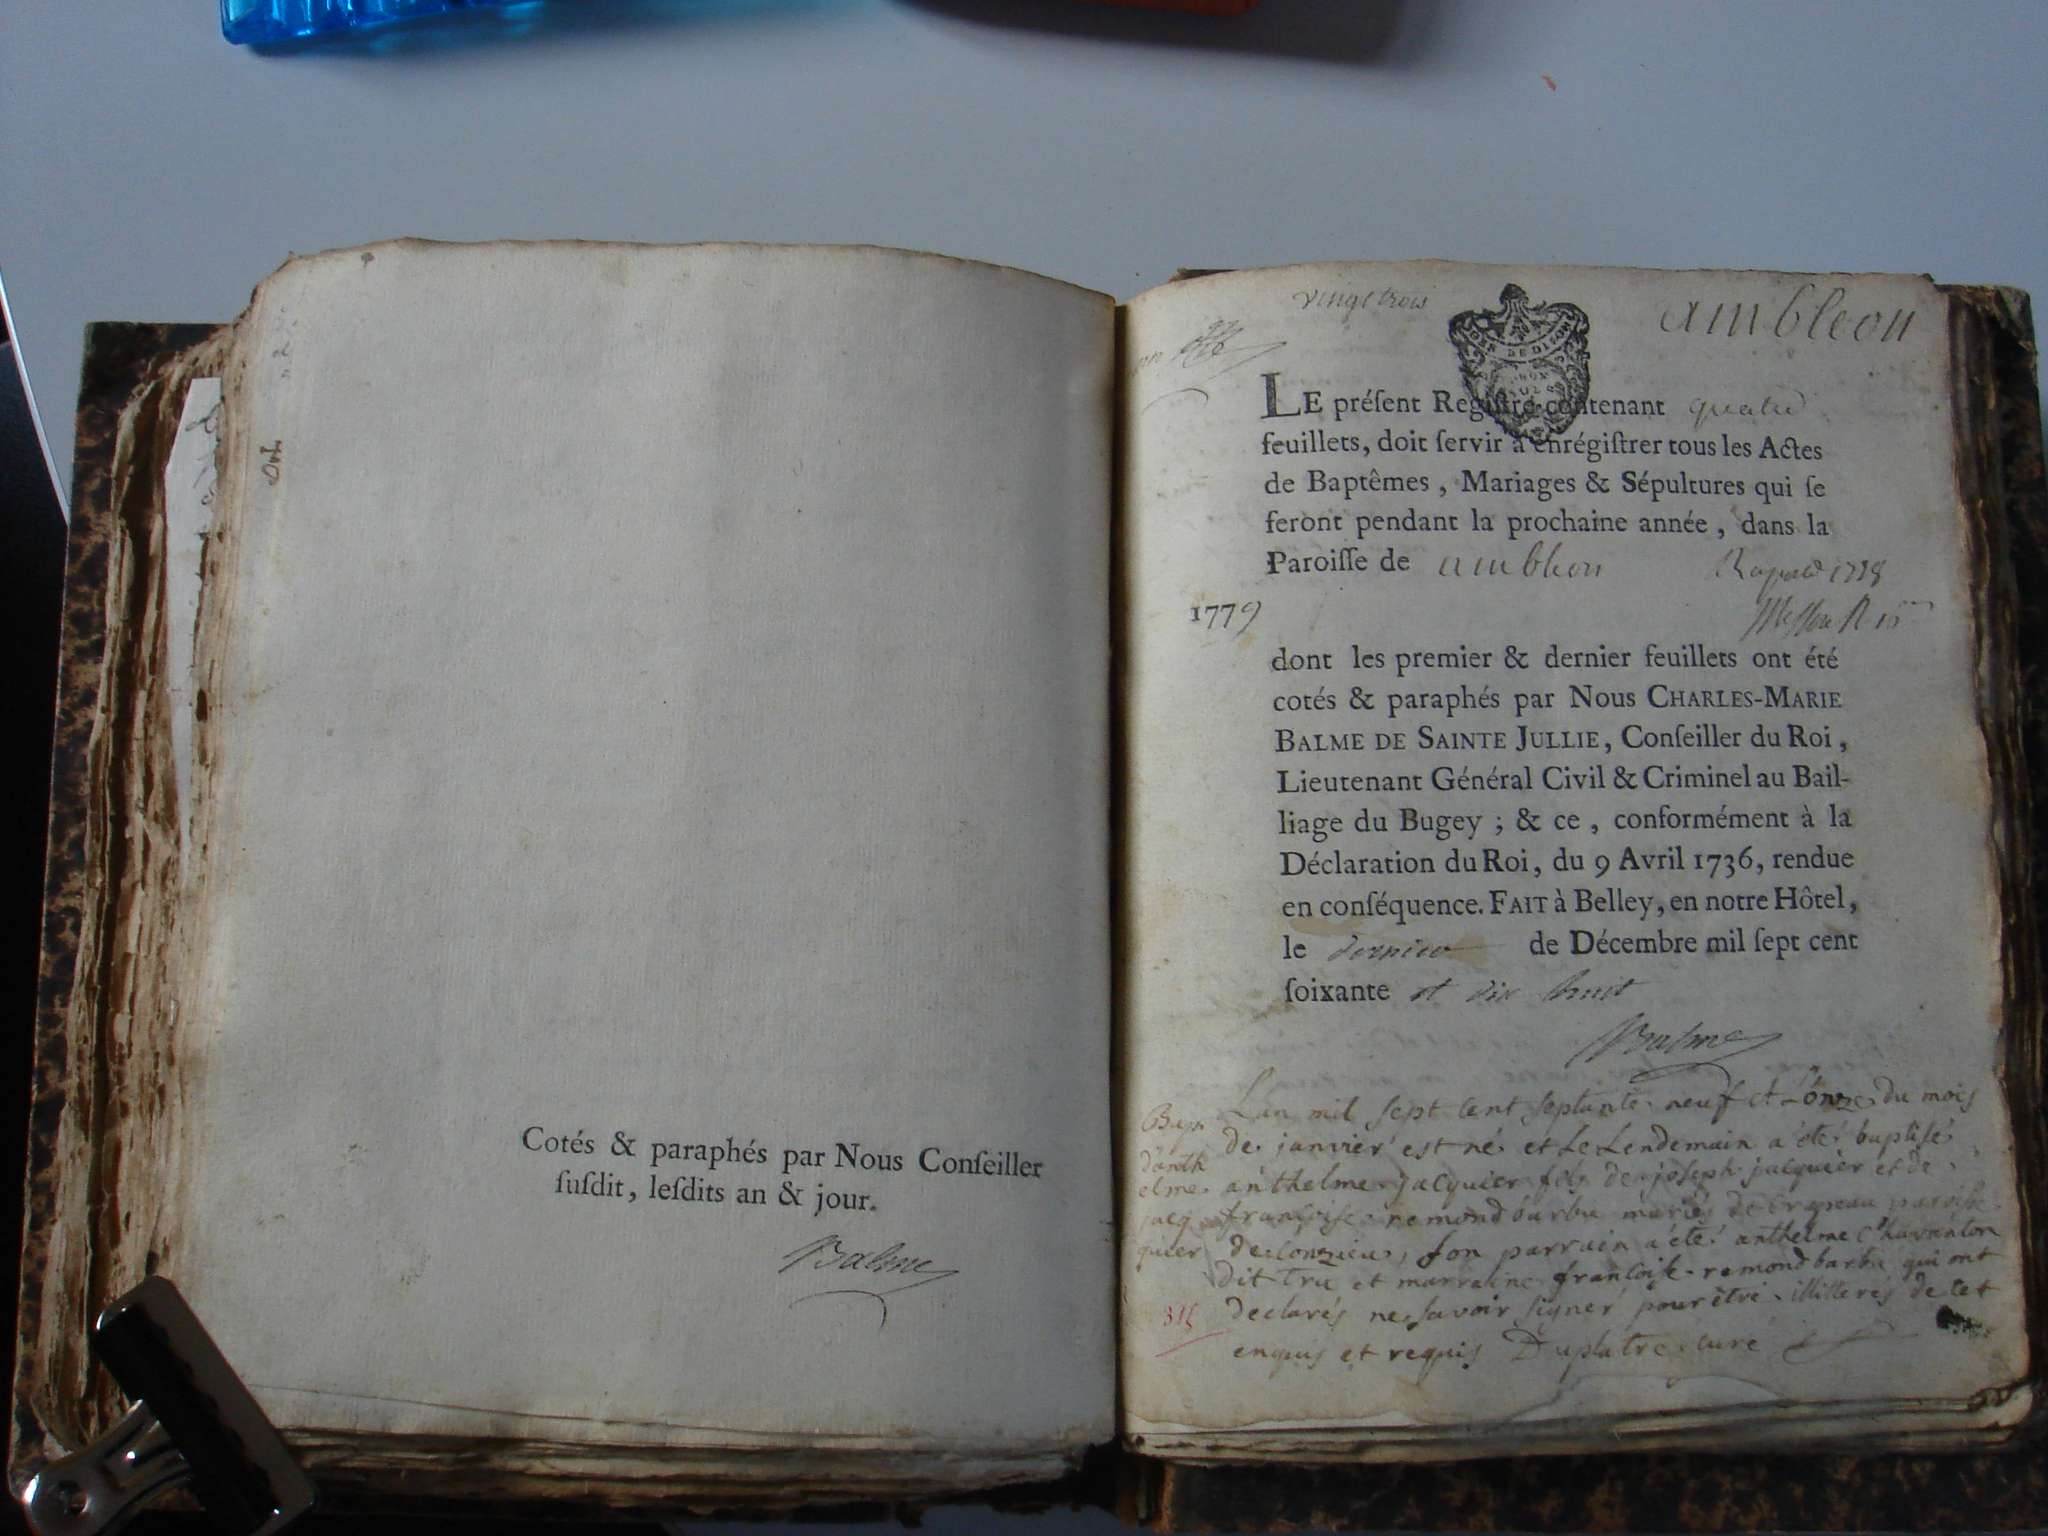 Cotés & paraphés par Nous Conſeiller
ſuſdit, leſdits an & jour.
Balme
vingt trois
ambleon
LE préſent Regiſtre contenant quatre
feuillets, doit ſervir à enrégiſtrer tous les Actes
de Baptêmes, Mariages & Sépultures qui ſe
feront pendant la prochaine année, dans la
Paroiſſe de ambleon
1779
dont les premier & dernier feuillets ont été
cotés & paraphés par Nous CHARLES-MARIE
BALME DE SAINTE JULLIE, Conſeiller du Roi,
Lieutenant Général Civil & Criminel au Bail-
liage du Bugey ; & ce, conformément à la
Déclaration du Roi, du 9 Avril 1736, rendue
en conſéquence. FAIT à Belley, en notre Hôtel,
le dernier de Décembre mil ſept cent
ſoixante et dix huit
Balme
Bap.
danth
elme
jacq
quier
L'an mil sept cent septante neuf et L'onze du mois
de janvier est né et Le Lendemain a été baptisé
anthelme jacquier fils de joseph jacquier et de
françoise remond barbu mariés de Crapeau paroisse
de Conzieu, son parrain a été anthelme Chavanton
dit tru et marraine françoise remond barbu qui ont
declarés ne savoir signer pour être illitterés de cet
enquis et requis Duplatre curé
315